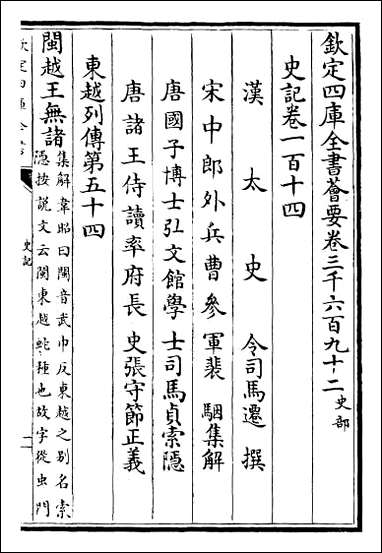 欽定四庫全書薈要卷三千六百九十二 史部
史記卷一百十四
漢太史令司馬遷撰
宋中郎外兵曹參軍裴駰集解
唐國子博士弘文館學士司馬貞索隱
唐諸王侍讀率府長史張守節正義
東越列傳第五十四
閩越王無諸 集解韋昭曰閩音武巾反東越之别名索
隱按説文云閩東越蛇種也故字從虫門
史記